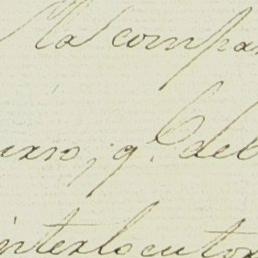 la compa
uxo, q.e deb
interlocutor